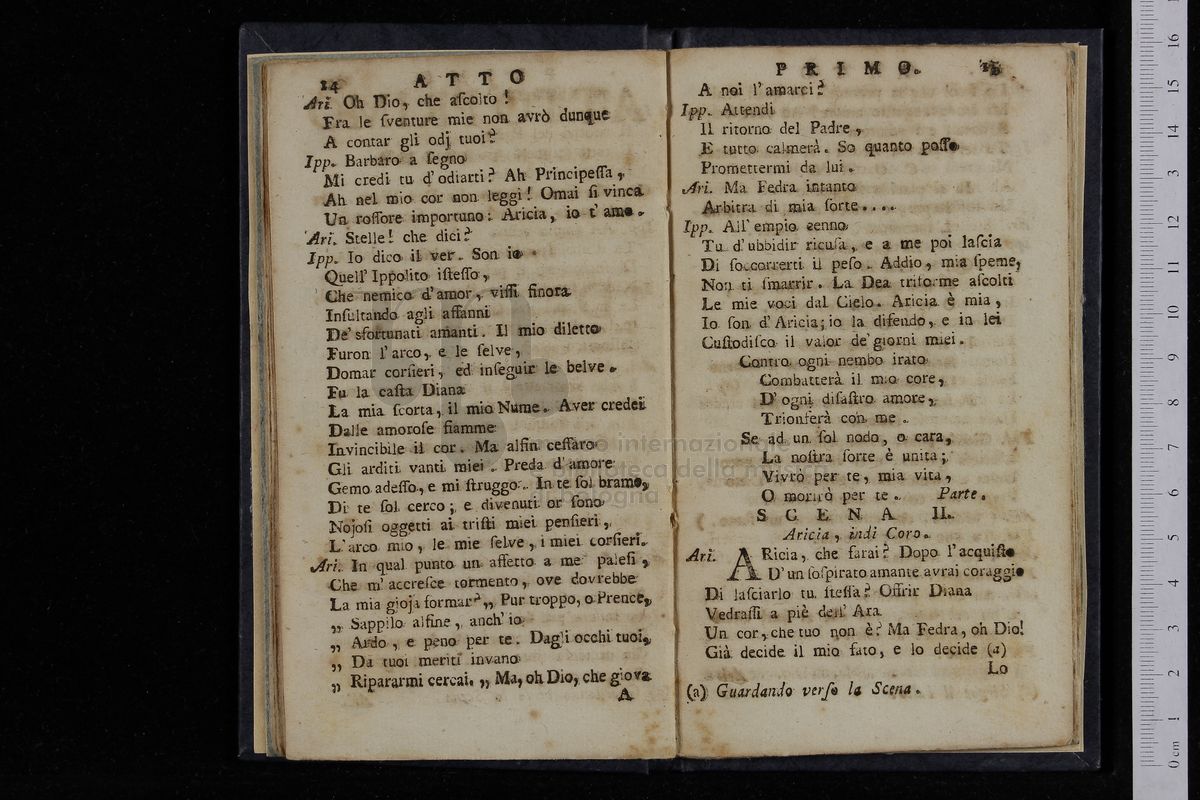 14 ATTO
Ari. Oh Dio, che aſcolto!
Fra le ſventure mie non avrò dunque
A contar gli odj tuoi?
Ipp. Barbaro a ſegno
Mi credi tu d'odiarti? Ah Principeſſa,
Ah nel mio cor non leggi! Omai ſi vinca
Un roſſore importuno: Aricia, io t'amo.
Ari. Stelle! che dici?
Ipp. Io dico il ver. Son io
Quell' Ippolito iſteſſo,
Che nemico d'amor, viſſi finora
Inſultando agli affanni
De' sfortunati amanti. Il mio diletto
Furon l'arco, e le ſelve,
Domar corſieri, ed inſeguir le belve.
Fu la caſta Diana
La mia ſcorta, il mio Nume. Aver credei
Dalle amoroſe fiamme
Invincibile il cor. Ma alfin ceſſaro
Gli arditi vanti miei. Preda d'amore
Gemo adeſſo, e mi ſtruggo. In te ſol bramo,
Di te ſol cerco; e divenuti or ſono
Nojoſi oggetti ai triſti miei penſieri,
L'arco mio, le mie ſelve, i miei corſieri.
Ari. In qual punto un affetto a me paleſi,
Che m'accreſce tormento, ove dovrebbe
La mia gioja formar? „ Pur troppo, o Prence,
„ Sappilo alfine, anch'io
„ Ardo, e peno per te. Dagli occhi tuoi,
„ Da tuoi meriti invano
„ Ripararmi cercai. „ Ma, oh Dio, che giova
A
PRIMO. 15
A noi l'amarci?
Ipp. Attendi
Il ritorno del Padre,
E tutto calmerà. So quanto poſſo
Promettermi da lui.
Ari. Ma Fedra intanto
Arbitra di mia ſorte....
Ipp. All'empio cenno
Tu d'ubbidir ricuſa, e a me poi laſcia
Di ſoccorrerti il peſo. Addio, mia ſpeme,
Non ti ſmarrir. La Dea triforme aſcolti
Le mie voci dal Cielo. Aricia è mia,
Io ſon d'Aricia; io la difendo, e in lei
Cuſtodiſco il valor de' giorni miei.
Contro ogni nembo irato
Combatterà il mio core,
D'ogni diſaſtro amore,
Trionferà con me.
Se ad un ſol nodo, o cara,
La noſtra ſorte è unita;
Vivrò per te, mia vita,
O morirò per te. Parte.
SCENA II.
Aricia, indi Coro.
Ari. ARicia, che farai? Dopo l'acquiſto
D'un ſoſpirato amante avrai coraggio
Di laſciarlo tu ſteſſa? Offrir Diana
Vedraſſi a piè dell' Ara
Un cor, che tuo non è? Ma Fedra, oh Dio!
Già decide il mio fato, e lo decide (a)
Lo
(a) Guardando verſo la Scena.